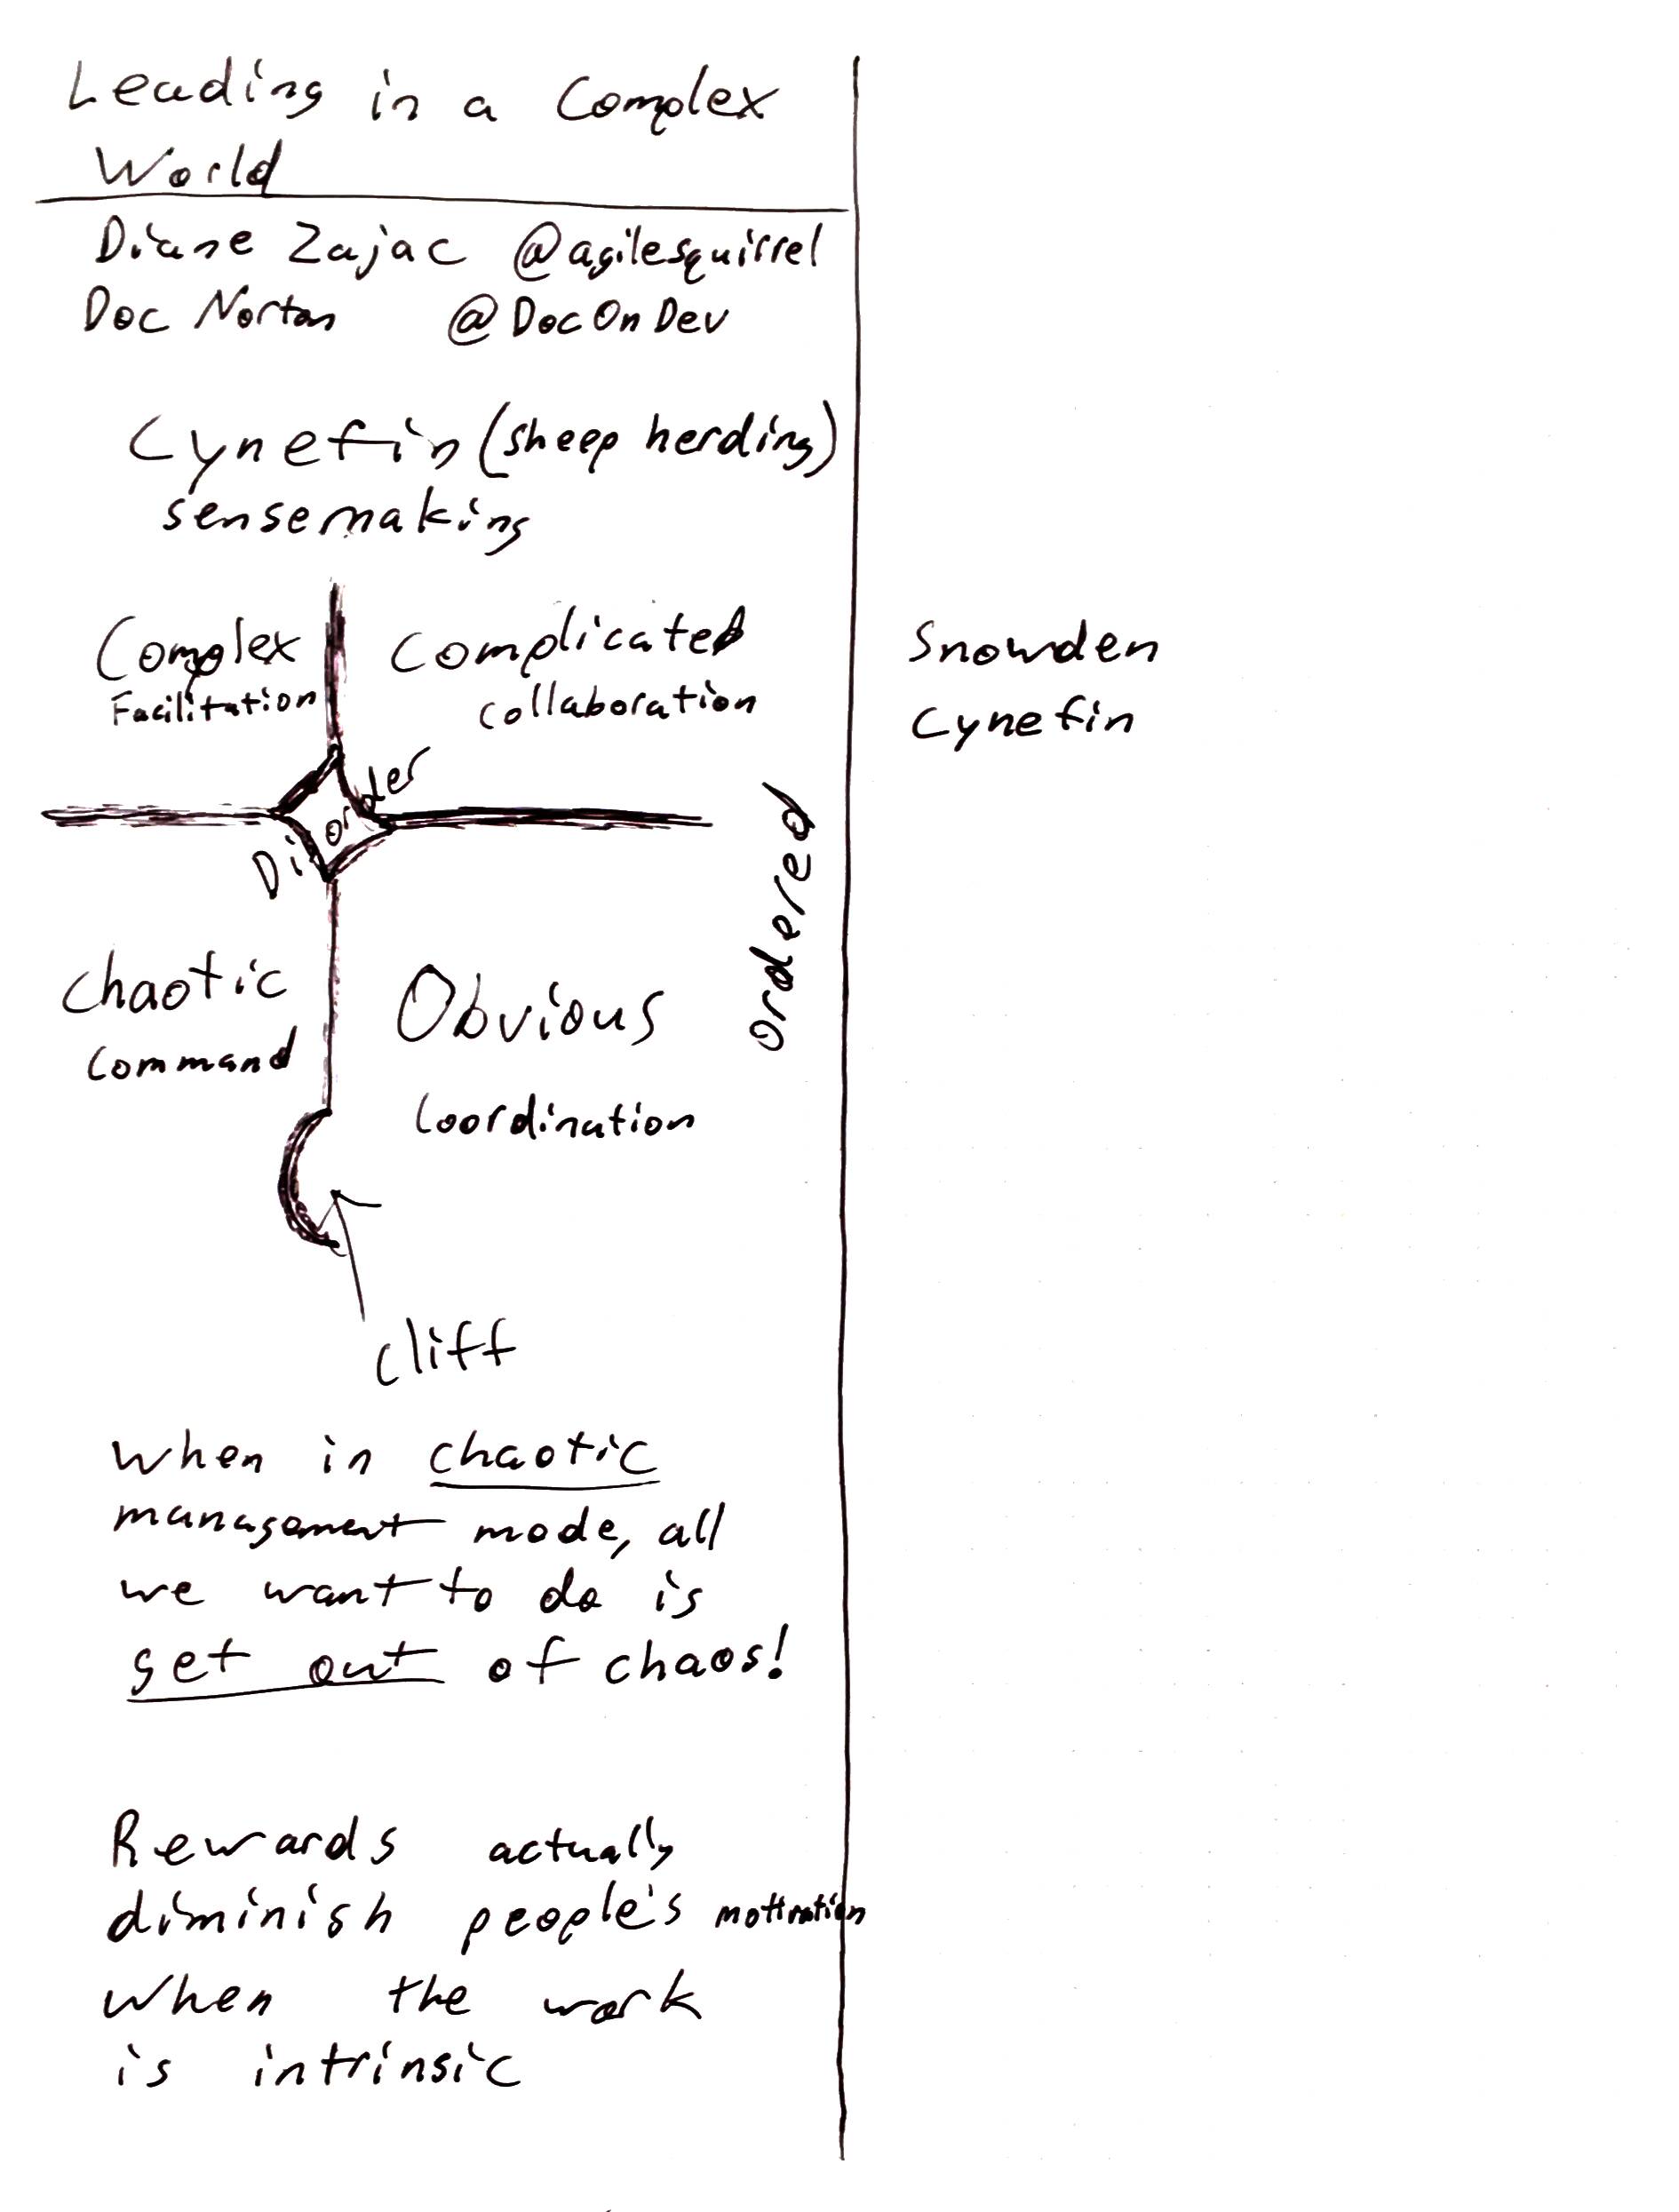 Leading in a Complex
World
Diane Zajac @agilesquirrel
Doc Norton @DocOnDev
Cynefin (sheep herding)
sensemaking
Complex
Facilitation
Complicated
collaboration
Di order
Chaotic
Command
Obvious
Coordination
ordered
cliff
When in chaotic
management mode, all
we want to do is
get out of chaos!
Rewards actually
diminish people's motivation
when the work
is intrinsic
Snowden
Cynefin